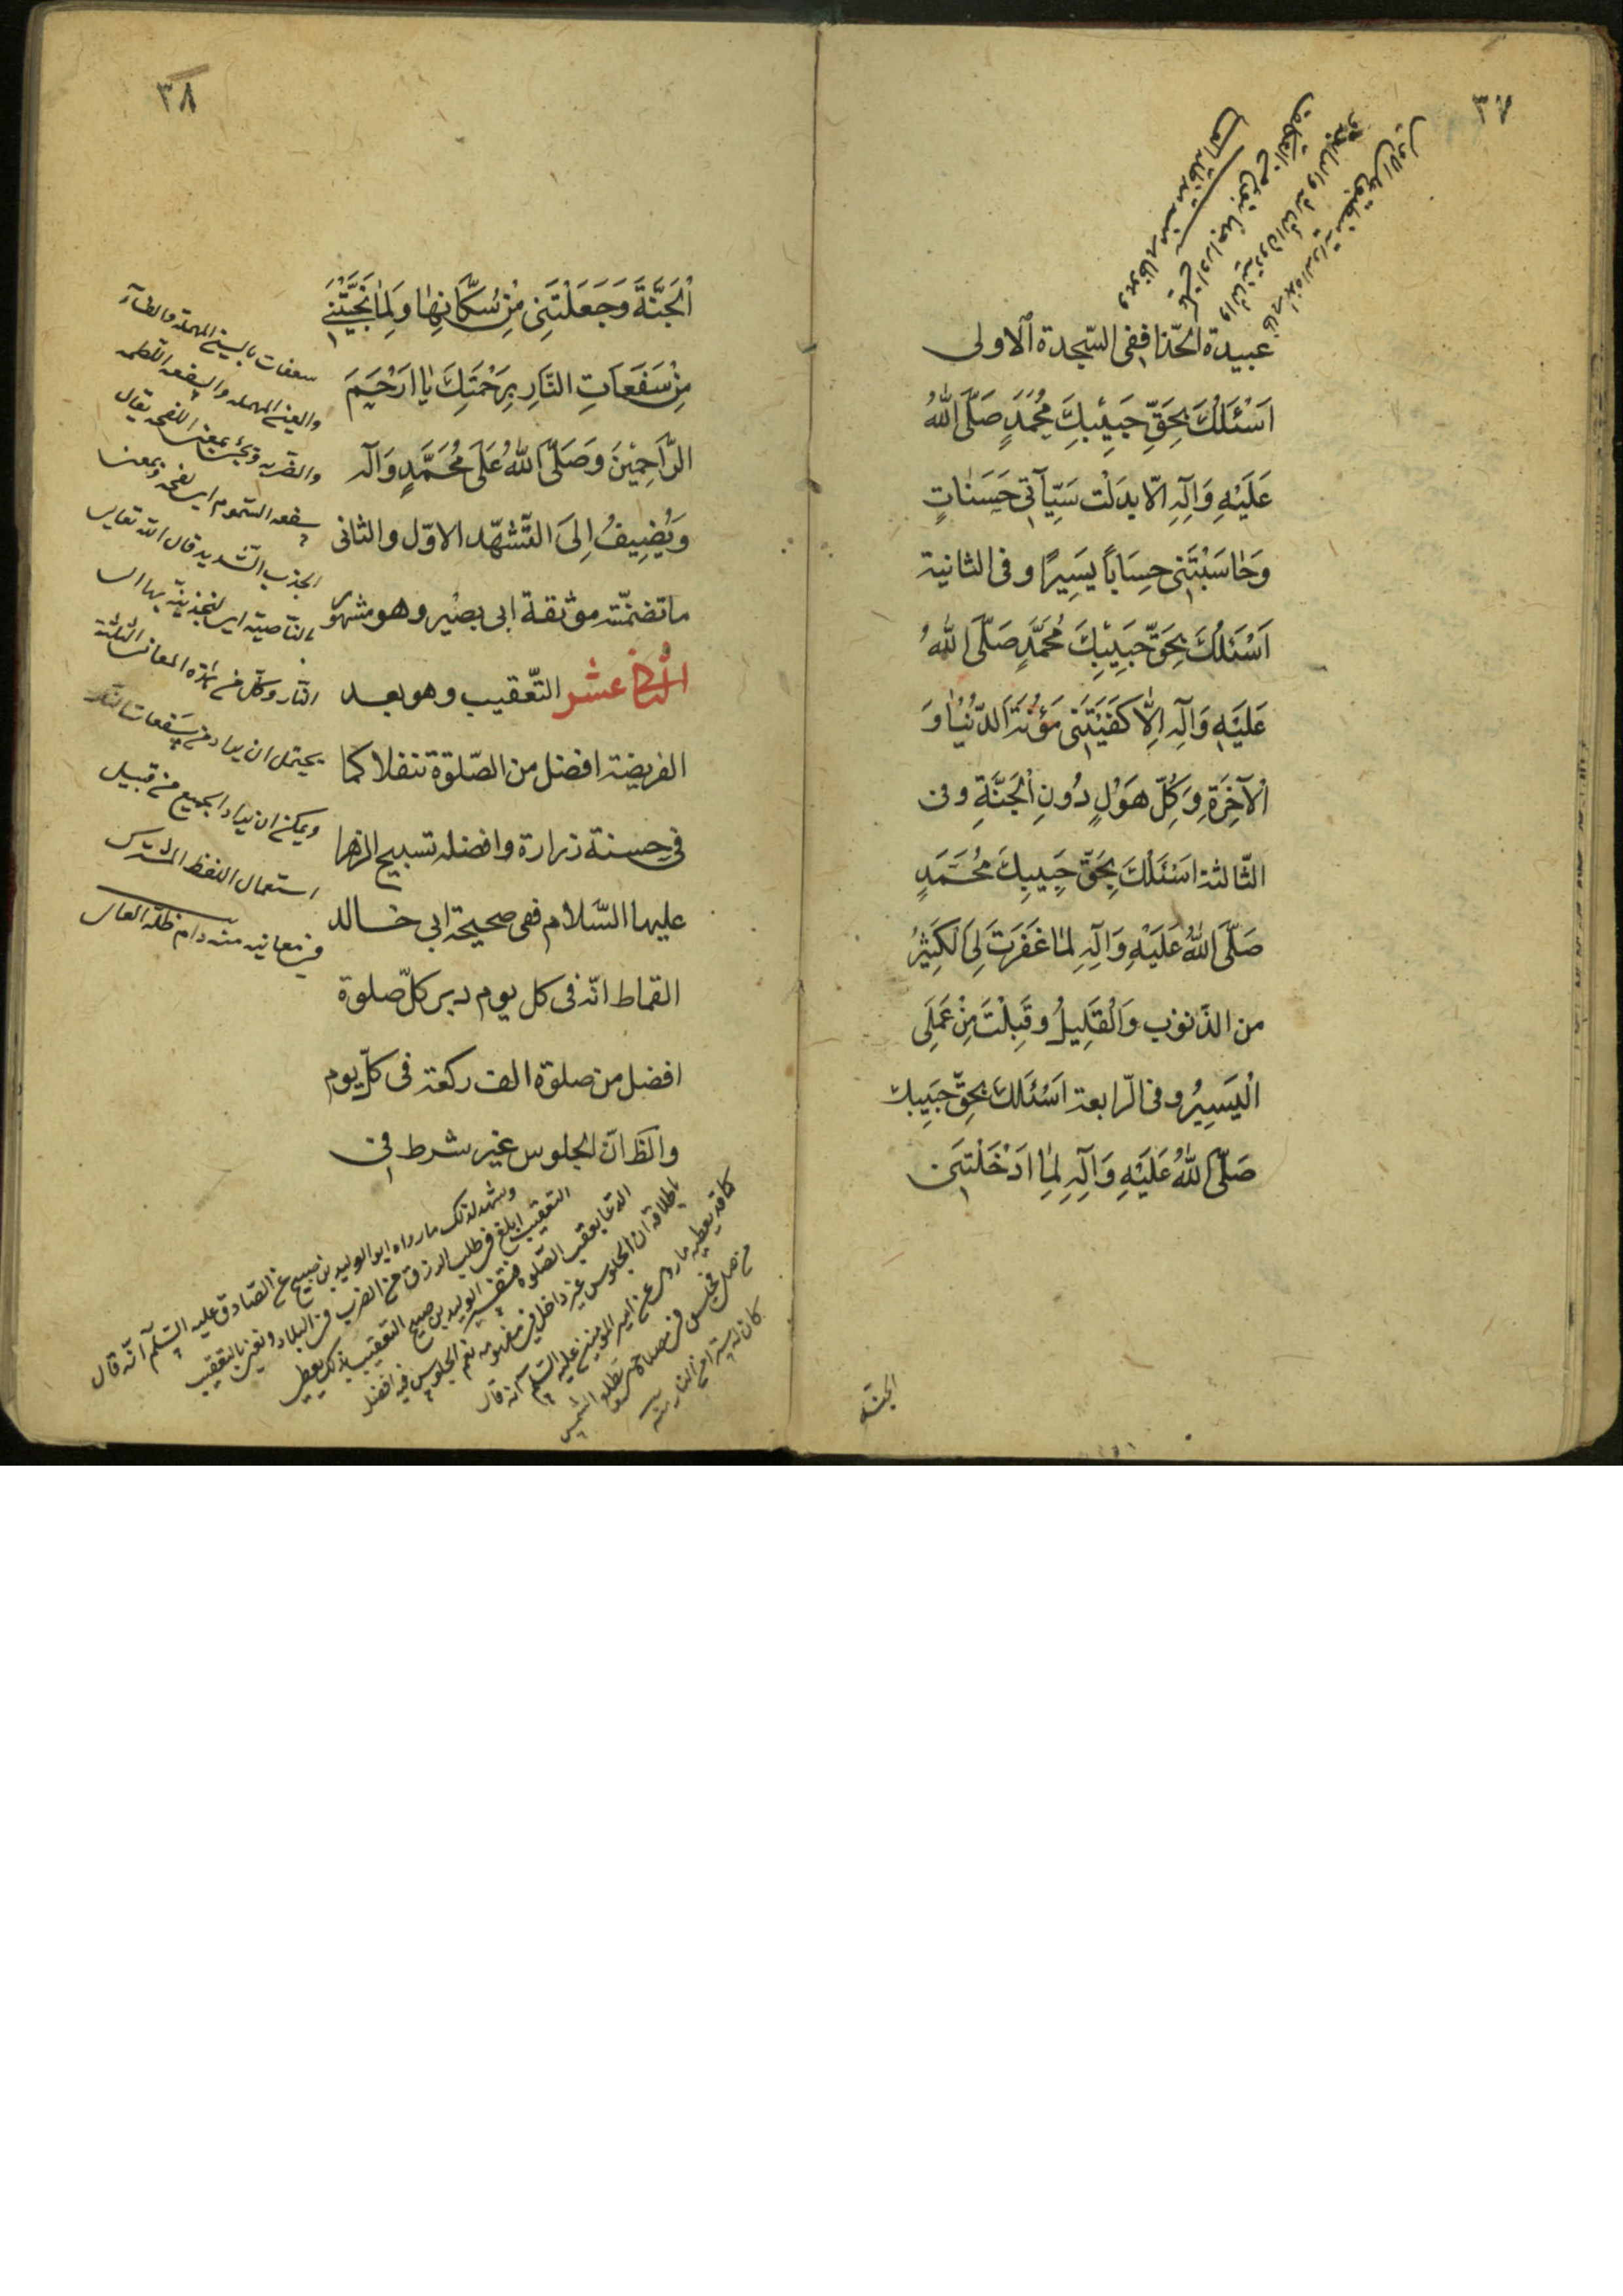 ٣٧
عبيدة الحّذا ففى السّجدة الاولى
اَسْئَلُكَ بِحَقِّ حَبِيْبِكَ مُحَمَّدٍ صَلَّى اللهُ
عَلَيْهِ وَاٰلِهِ الّا بدَلْت سَيِّاٰتى حَسَنٰاتٍ
وَحٰاسَبْتَنى حِسَاباً يَسِيرًا وفى الثانية
اَسْئَلُكَ بِحَقِّ حَبِيْبِكَ مُحَمَّدٍ صَلَّى اللهُ
عَلَيْهِ وَاٰلِهِ اِلّٰا كَفَيْتَنى مَؤُنَةَ الدّنْيٰا وَ
اْلآخِرَةِ وَكُلِّ هَوْلٍ دُونِ اْلجَنَّةِ وفى
الثّالثة اَسْئَلُكَ بِحَقِّ حَبِيبِكَ مُحَمَّدٍ
صَلَّى اللهُ عَلَيْهِ وَاٰلِهِ لمٰا غَفَرْتَ لِىَ الْكَثِيْرَ
من الذّنوب وَالْقَلِيلُ وقَبِلْتَ مِنْ عَمَلِى
الْيَسِيرُ وفى الرّابعة اَسْئَلُكَ بِحَقِّ حَبِيبِك
صَلَّى اللهُ عَلَيْهِ وَاٰلِهِ لمٰا اَدْخَلْتَنى
الجنّة
٣٨
اْلجَنَّةَ وَجَعَلْتَنِى مِنْ سُكّٰانِهٰا وَلمٰا نَجَّيْتَنى
مِنْ سَفَعَاتِ النّارِ بِرَحْمَتِكَ يٰا اَرْحَمَ
الرّٰاحِمِيْنَ وَصَلَّى اللهُ عَلَى مُحَمَّدٍ وَآلِه
وَيُضِيفُ اِلىَ التّشهّد الاوّل والثانى
ما تضمّنته موثقة ابى بصير وهو مشهور
الثانى عشر التّعقيب وهو بعد
الفريضة افضل من الصّلوة تنفلا كما
فى حسنة زرارة وافضله تسبيح الزهرا
عليها السّلام ففى صحيحة ابى خالد
القماط انّه فى كل يوم دبر كلّ صلوة
افضل من صلوة الف ركعة فى كلّ يوم
والظ انّ الجلوس غير شرط فى
سعفات بالسين المهملة والطاء
والعين المهمله والسفعه اللطمه
والضربه وتجئ بمعنى اللفحه يقال
سفعه السّموم اى لفحه وبمعنى
الجذب الشّديد قال الله تعالى
بالنّاصية اى لنجذبنّه بها الى
النّار وكلّ من هذه المعانى الثلثة
يحتمل ان يراد من سفعات النّار
ويمكن ان يراد الجميع من قبيل
استعمال اللفظ المشترك
فى معانيه منه دام ظلّه العالى
ويشهد لذلك ما رواه ابو الوليد بن صبيح عن الصّادق عليه السّلام انّه قال
التعقيب ابلغ فى طلب الرزق من الضرب فى البلاد ونعنى بالتعقيب
الدعا بعقب الصّلوة فتفسير الوليد بن صبيح التعقيب بذلك يعطى
باطلاقه ان الجلوس غير داخل فى مفهومه نعم الجلوس فيه افضل
كما قد يعطيه ما روى عن امير المومنين عليه السّلم انه قال
من صلى فجلس فى مصلاه حتى تطلع الشمس
كان له سترا من النار منه